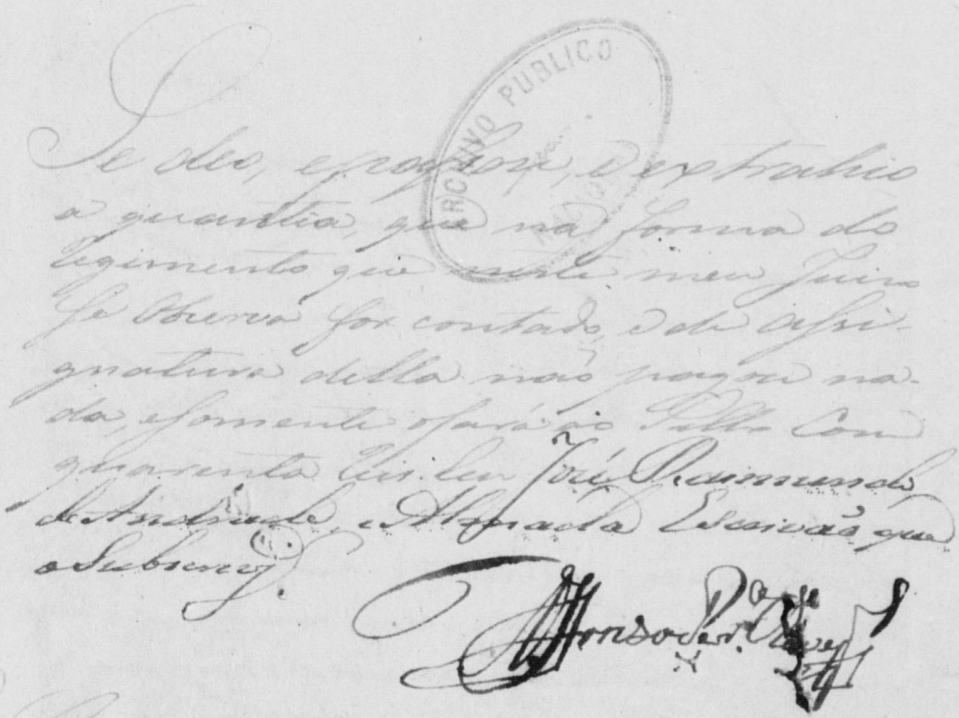 ARCHIVO PUBLICO
Se deo, e passou, e extrahio
a quantia, que na forma do
Regimento que neste meu Juizo
se observa for contado, e de assi-
gnatura della não pagou na-
da, e somente o
quarenta reis. Eu José Raimundo
de Andrade, e Almada Escrivaõ que
o Subscrevy.
Affonso